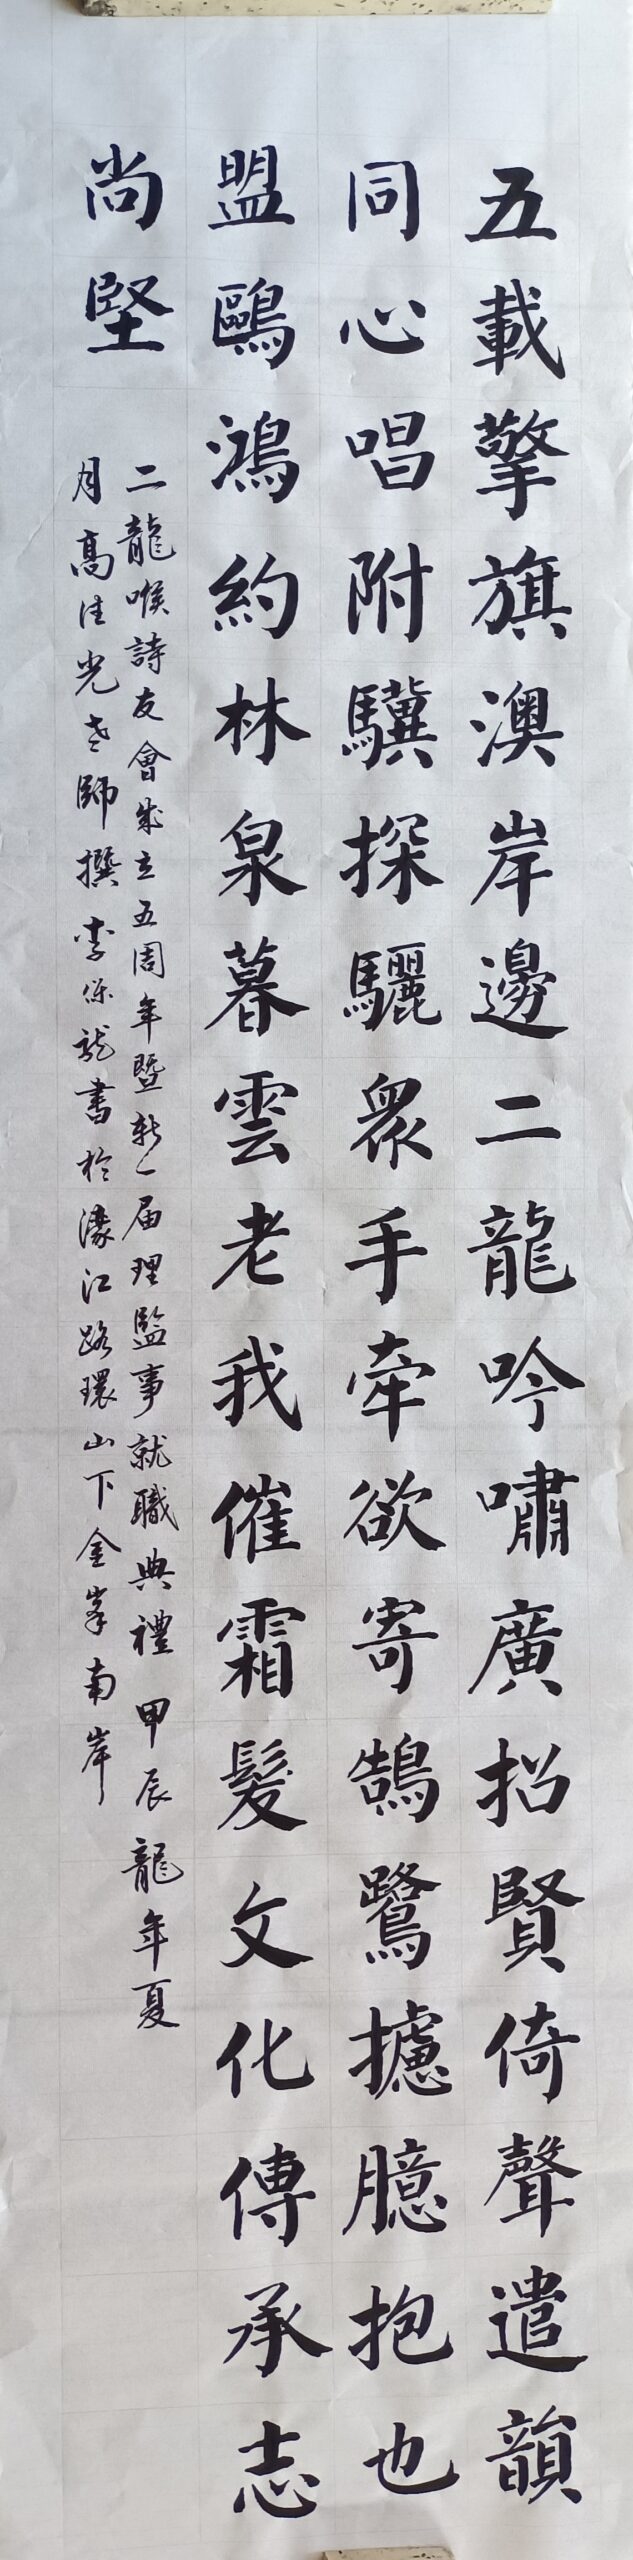 五載擎旗澳岸邊二龍吟嘯廣招賢倚聲遣韻
同心唱附驥探驪眾手牽欲寄鵠鷺攄臆抱也
盟鷗鴻約林泉暮雲老我催霜髮文化傳承志
尚堅
二龍喉詩友會成立五周年暨新一届理監事就職典禮 甲辰龍年夏
月高佳光老師撰李保龍書於濠江路環山下金峯南岸